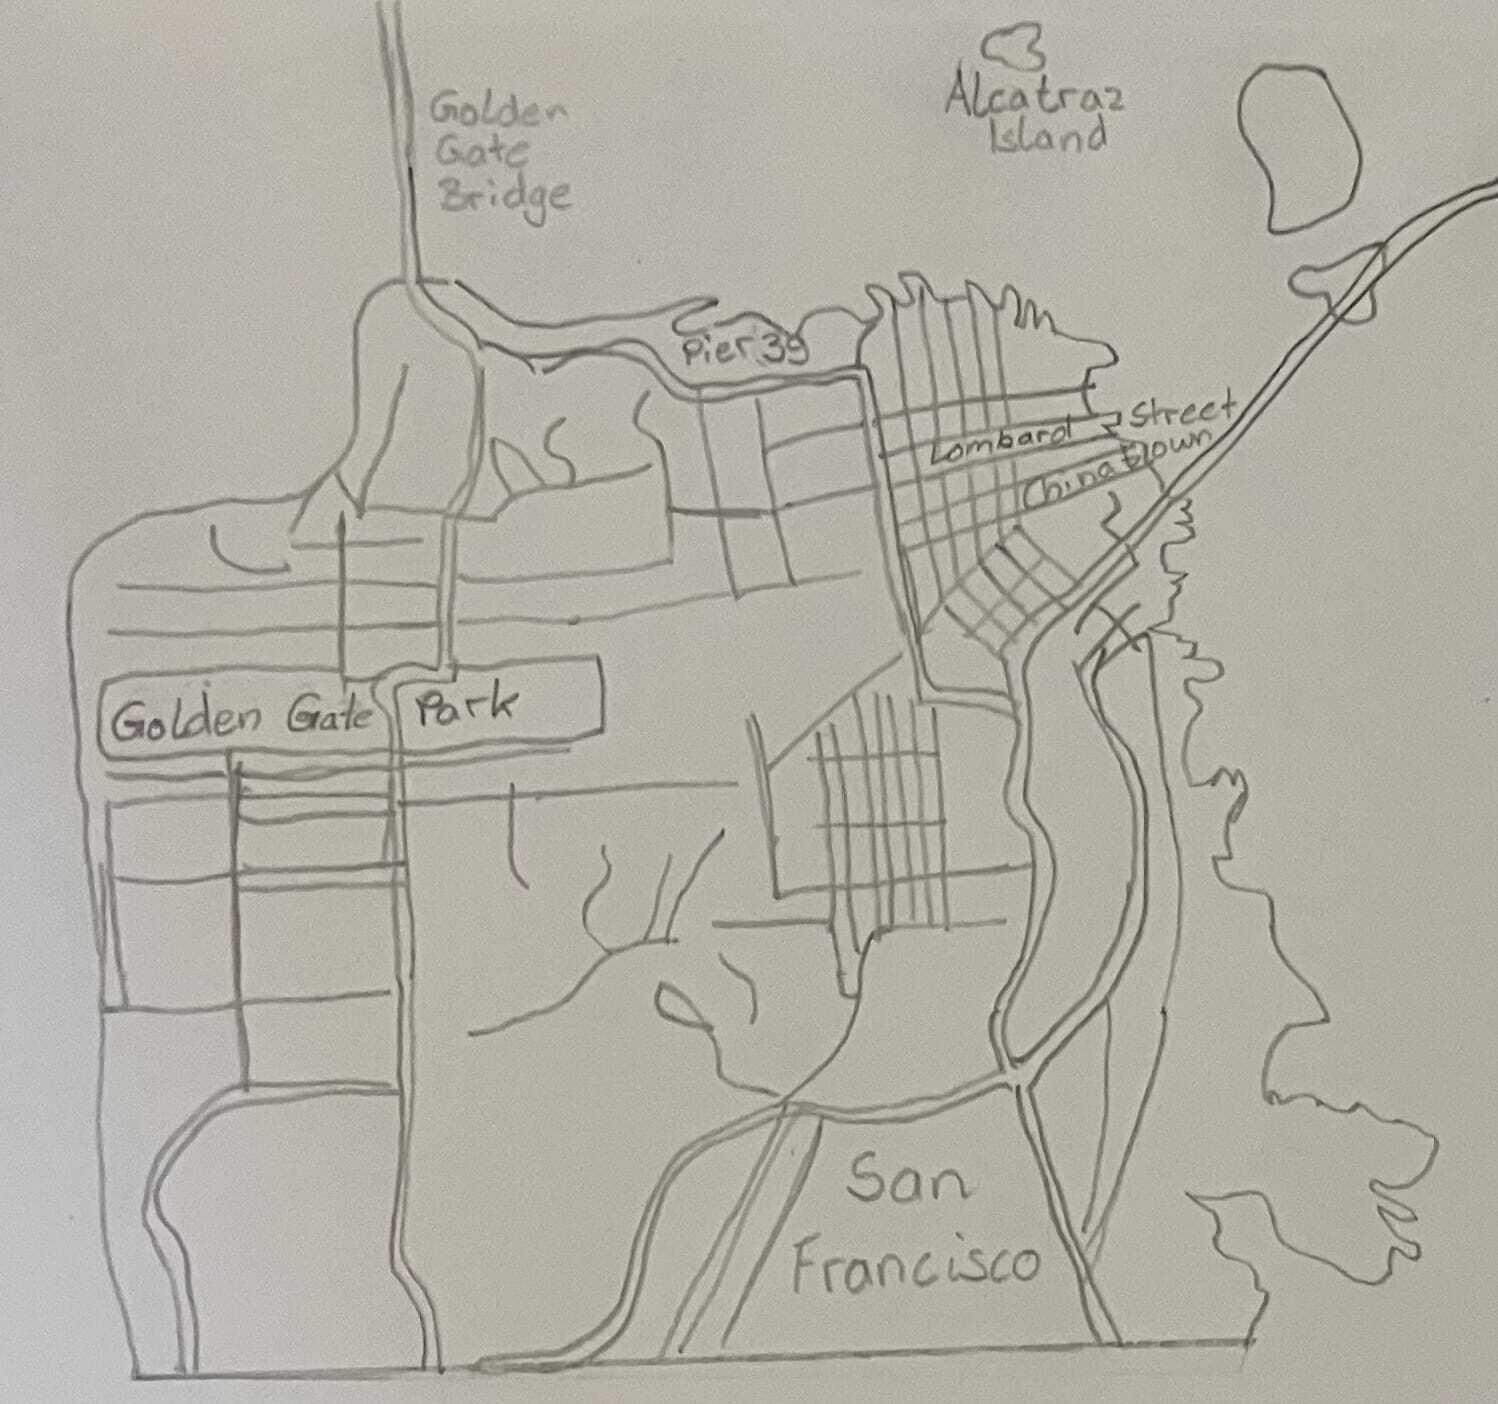 Golden
Gate
Bridge
Alcatraz
Island
Pier 39
Lombard Street
Chinatown
Golden Gate Park
San
Francisco